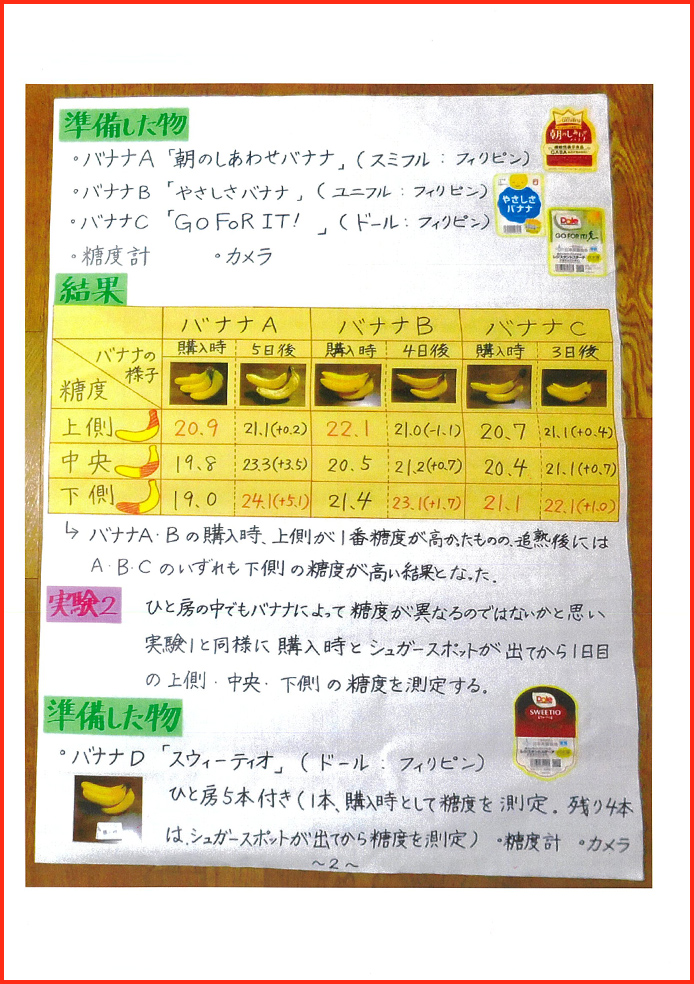 準備した物
・バナナA 「朝のしあわせバナナ」 (スミフル : フィリピン)
・バナナB 「やさしさバナナ」 (ユニフル : フィリピン)
・バナナC 「GO FoR IT! 」 (ドール : フィリピン)
・糖度計 ・カメラ
朝のしあわせ
GABA
やさしさ
バナナ
Dole
GO FOR IT!
結果
バナナA バナナB バナナC
バナナの様子 購入時 5日後 購入時 4日後 購入時 3日後
糖度
上側 20.9 21.1(+0.2) 22.1 21.0(-1.1) 20.7 21.1(+0.4)
中央 19.8 23.3(+3.5) 20.5 21.2(+0.7) 20.4 21.1(+0.7)
下側 19.0 24.1(+5.1) 21.4 23.1(+1.7) 21.1 22.1(+1.0)
↳ バナナA・Bの購入時、上側が1番糖度が高かったものの、追熟後には
A・B・Cのいずれも下側の糖度が高い結果となった.
実験2 ひと房の中でもバナナによって糖度が異なるのではないかと思い
実験1と同様に購入時とシュガースポットが出てから1日目
の上側・中央・下側の糖度を測定する.
準備した物
Dole
SWEETIO
・バナナD 「スウィーティオ」 (ドール : フィリピン)
ひと房5本付き(1本、購入時として糖度を測定. 残り4本
は、シュガースポットが出てから糖度を測定) ・糖度計 ・カメラ
~2~